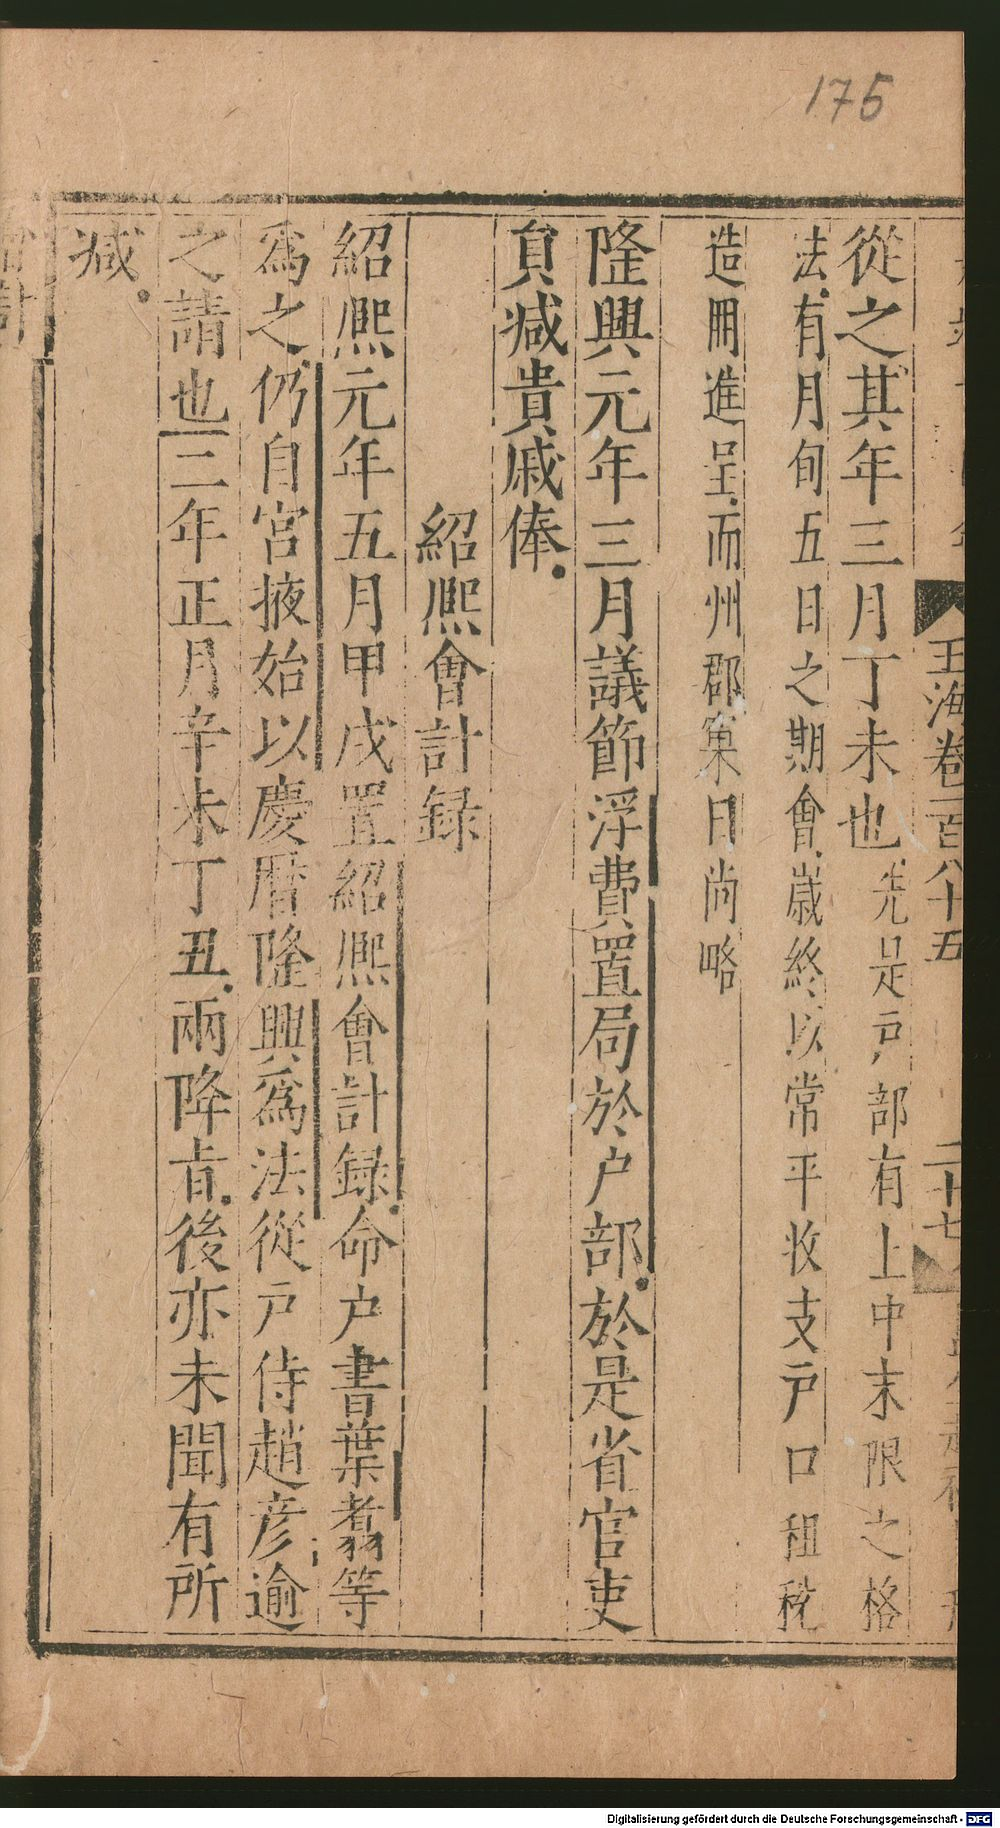 175
玉海卷一百八十五
二十七
從之其年三月丁未也先是戶部有上中末限之格
法有月旬五日之期會歲終以常平收支戶口租稅
造冊進呈而州郡窠日尚略
隆興元年三月議節浮費置局於户部於是省官吏
負减貴戚俸
紹熈會計録
紹熈元年五月甲戌置紹熈會計録命户書葉翥等
爲之仍自宮掖始以慶曆隆興爲法從戸侍趙彦逾
之請也二年正月辛未丁丑兩降㫖後亦未聞有所
减
Digitalisierung gefördert durch die Deutsche Forschungsgemeinschaft - DFG